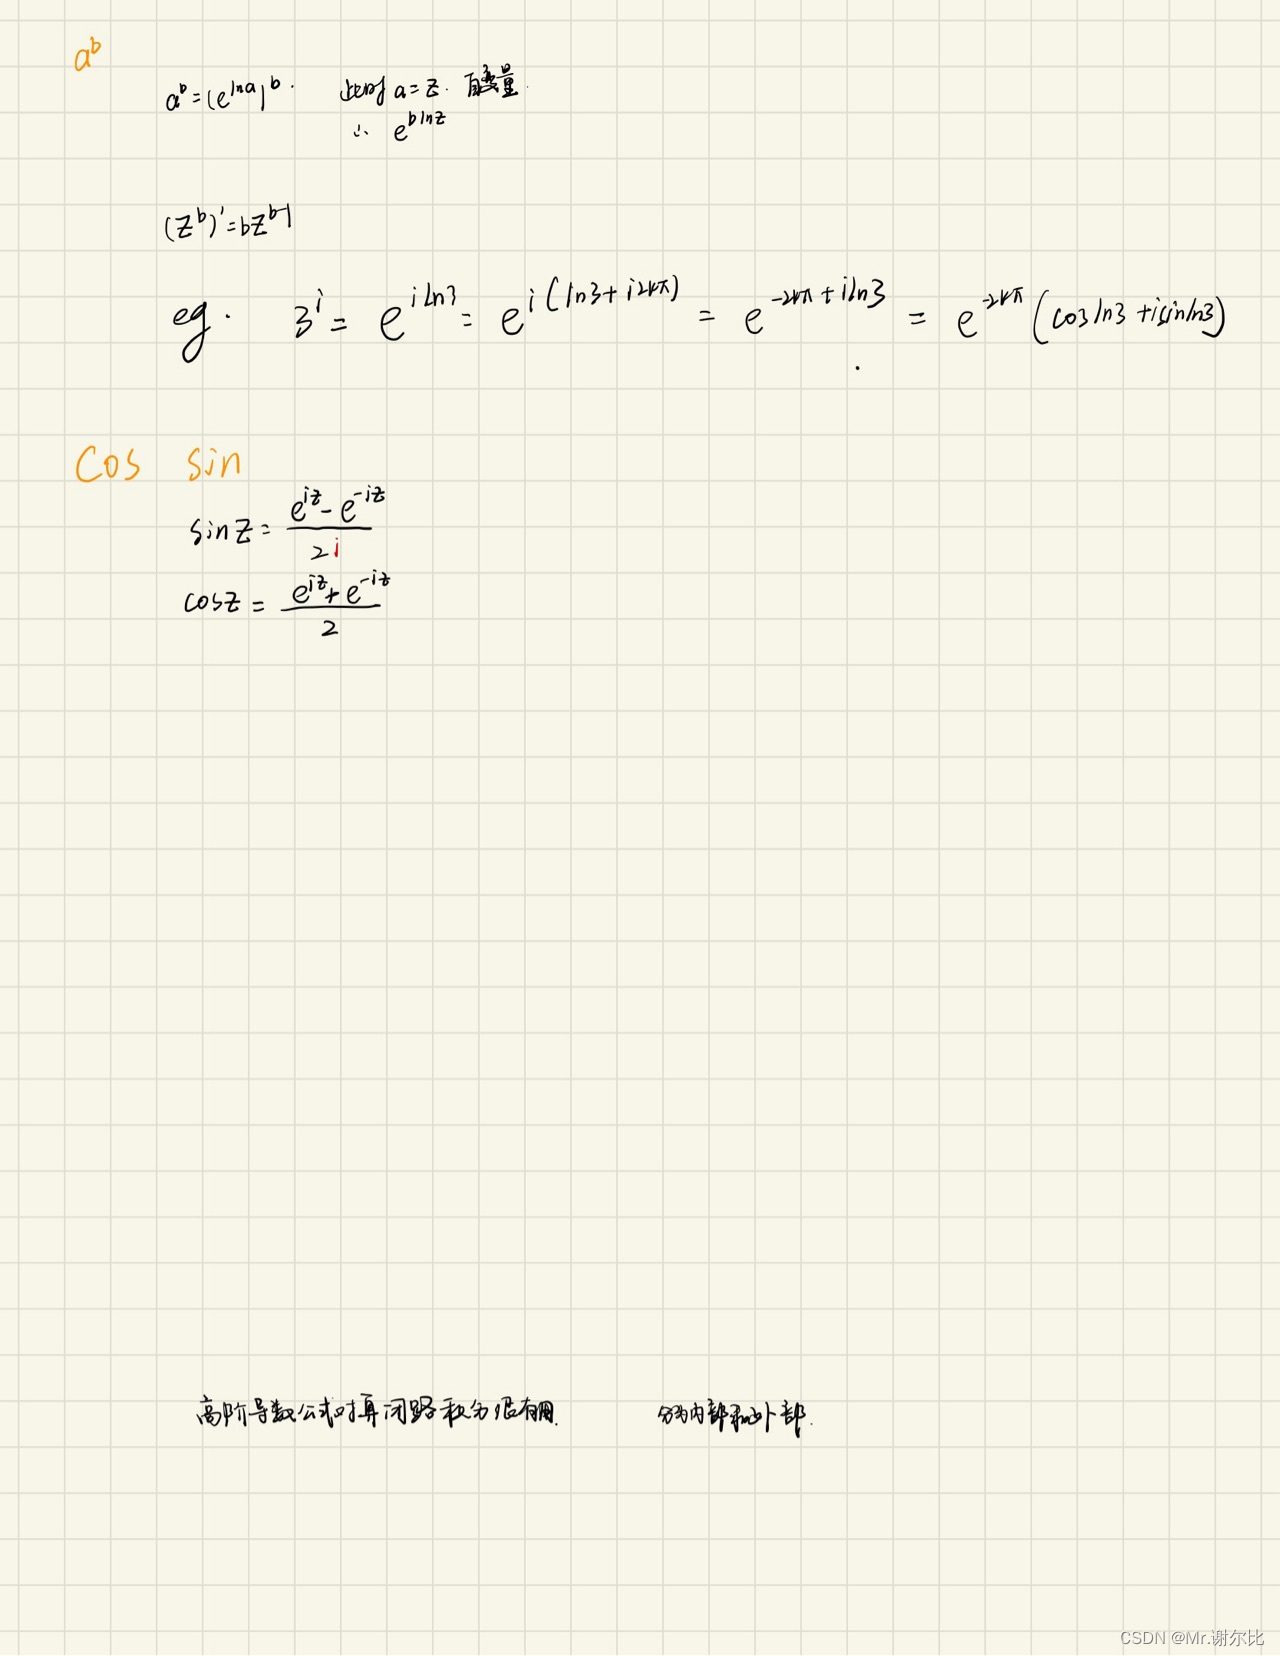 a^b
a^b = (e^{lna})^b. 此时 a = z. 自变量.
∴ e^{blnz}
(z^b)' = bz^{b-1}
eg. 3^i = e^{iLn3} = e^{i(ln3+i2kπ)} = e^{-2kπ+iln3} = e^{-2kπ}(cosln3+isinln3)
cos sin
sinz = \frac{e^{iz} - e^{-iz}}{2i}
cosz = \frac{e^{iz} + e^{-iz}}{2}
高阶导数公式对算闭路积分很有用. 分为内部和外部.
CSDN @Mr.谢尔比